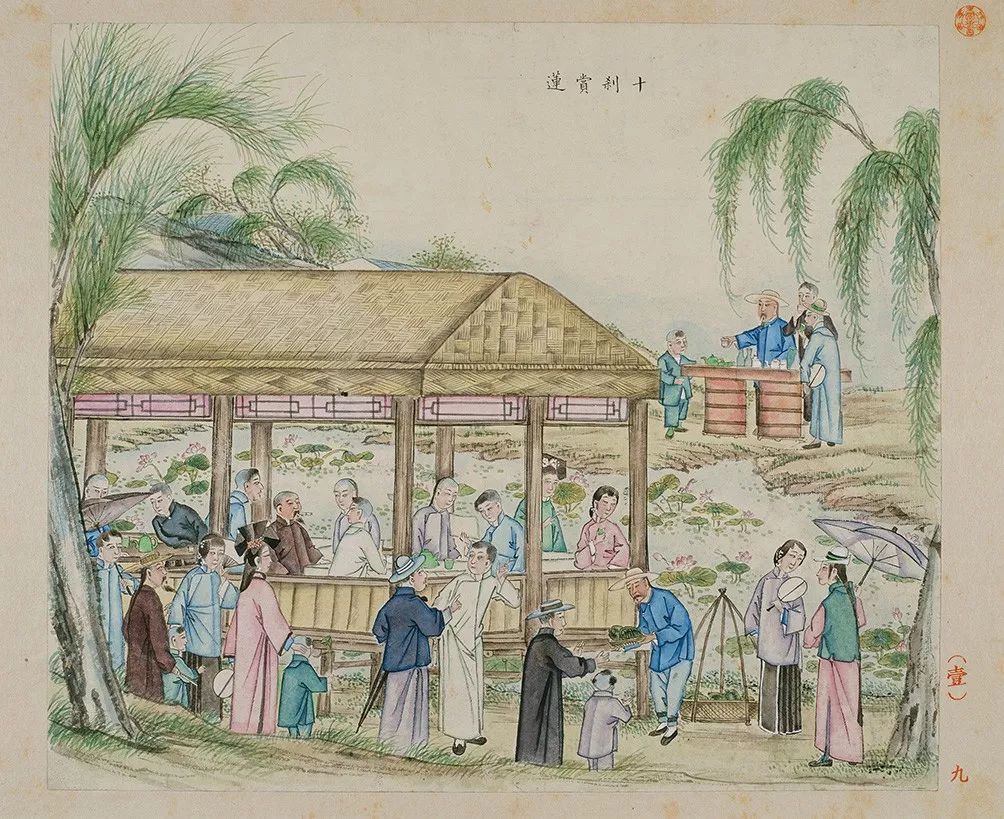 十刹賞蓮
(壹)
九